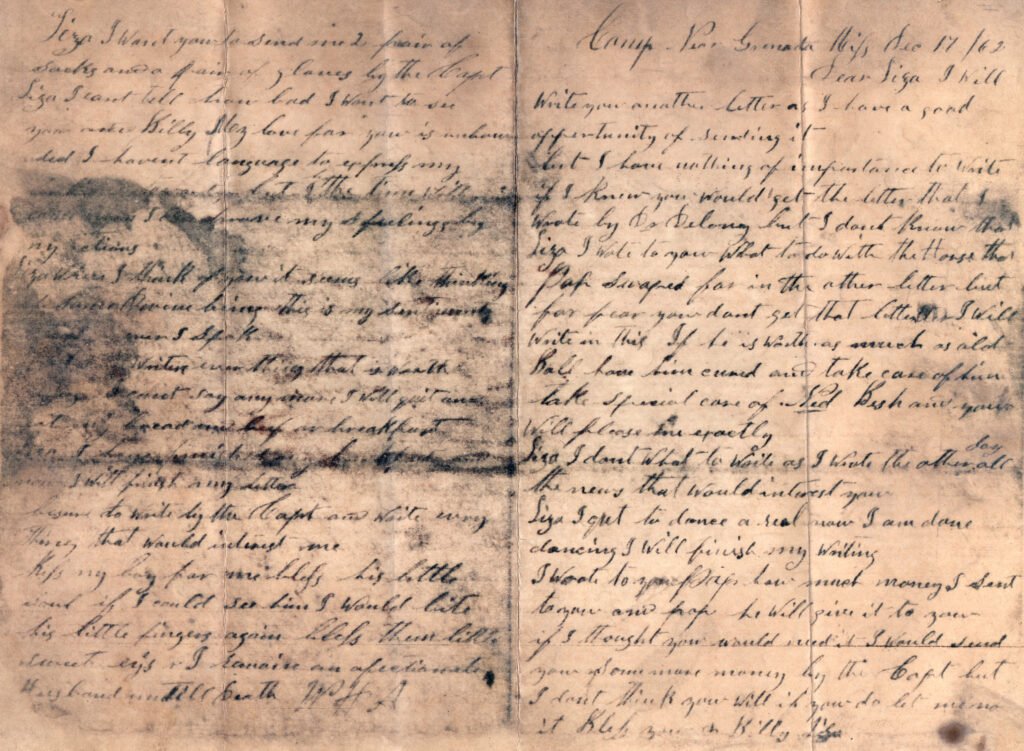 Camp Near Grenada Miss Dec 17 /62
Dear Liza I Will
Write you another letter as I have a good
opportunity of sending it
but I have nothing of importance to Write
if I knew you would get the letter that I
Wrote by Dr Delony but I dont Know that
Liza I Wrote to you What to do with the Horse that
Pap swaped for in the other letter but
for fear you dont get that letter I Will
Write in this If he is Worth as much as old
Ball have him cured and take care of him
take special care of and you
Will please me exactly
Liza I dont What to Write as I Wrote the other day all
the news that Would interest you
Liza I get to dance a reel now I am done
dancing I Will finish my Writing
I Wrote to you how much money I sent
to you and pap he Will give it to you
if I thought you would need it I Would send
you some more money by the Capt but
I dont think you Will if you do let me no
it Bless you & Billy Liza
Liza I Want you to send me 2 pair of
socks and a pair of gloves by the Capt
Liza I cant tell how bad I Want to see
you and Billy love for you is unboun
ded I havent language to express my
but the time Will
my feelings by
my actions
I think of you it seems like thinking
Divine being this is my sentiments
I
Writen every thing that is Worth
cant say any more I Will quit and
bread and beef for breakfast
I have
now I Will finish my letter
besure to write by the Capt and Write every
thing that Would interest me
Kiss my boy for me bless his little
soul if I could see him I Would bite
his little fingers again bless them little
sweet eys I remaine an afectionate
Husband untill Death